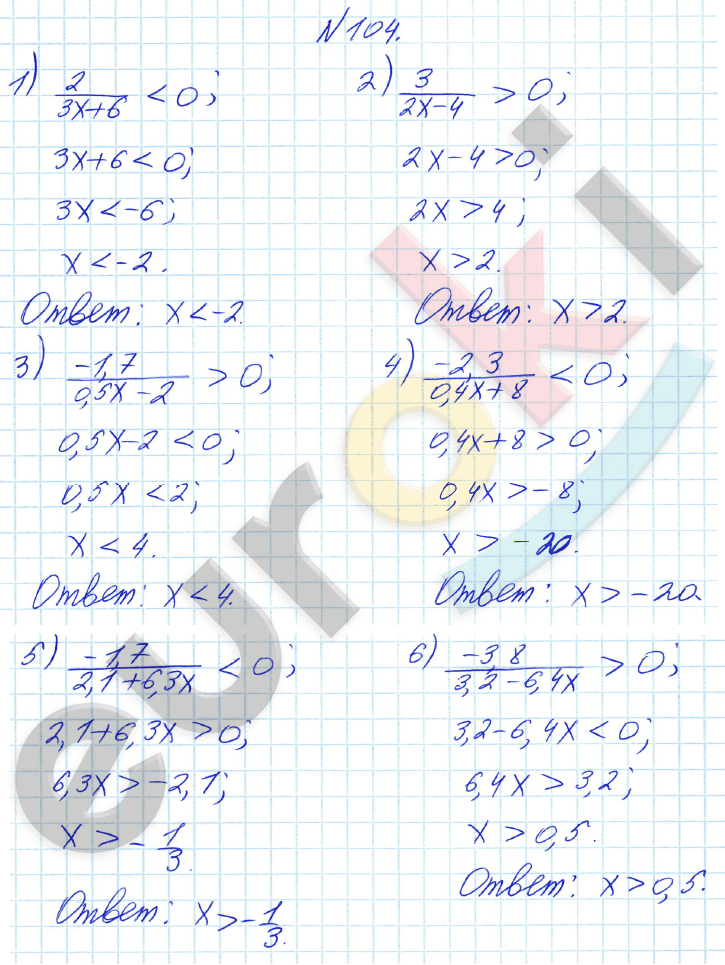 №104.
1) 2/(3x+6) < 0;
3x+6 < 0;
3x < -6;
x < -2.
Ответ: x < -2.
2) 3/(2x-4) > 0;
2x-4 > 0;
2x > 4;
x > 2.
Ответ: x > 2.
3) -1,7/(0,5x-2) > 0;
0,5x-2 < 0;
0,5x < 2;
x < 4.
Ответ: x < 4.
4) -2,3/(0,4x+8) < 0;
0,4x+8 > 0;
0,4x > -8;
x > -20.
Ответ: x > -20.
5) -1,7/(2,1+6,3x) < 0;
2,1+6,3x > 0;
6,3x > -2,1;
x > -1/3.
Ответ: x > -1/3.
6) -3,8/(3,2-6,4x) > 0;
3,2-6,4x < 0;
6,4x > 3,2;
x > 0,5.
Ответ: x > 0,5.
euroki